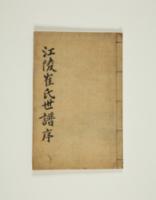 江陵崔氏世譜序